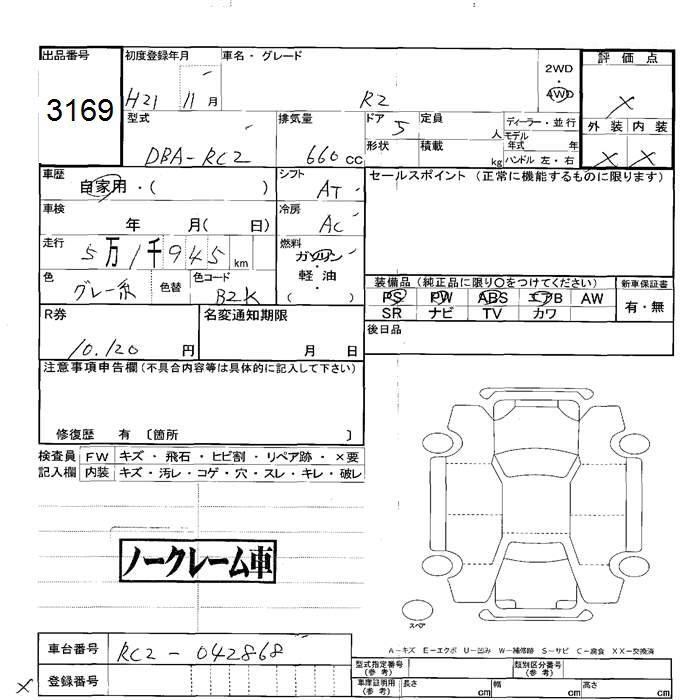 出品番号 初度登録年月 車名・グレード 評価点
3169 H21 11月 R2 2WD 4WD ×
型式 排気量 ドア 定員 ディーラー・並行 外装 内装
DBA-RC2 660cc 5 人 モデル年式 年 × ×
形状 積載 kg ハンドル 左・右
車歴 自家用・( ) シフト AT セールスポイント (正常に機能するものに限ります)
車検 年 月( 日) 冷房 AC
走行 5万1千945km 燃料 ガソリン・軽油 ( )
色 グレー系 色替 色コード B2K
装備品 (純正品に限り○をつけてください) 新車保証書
PS PW ABS エアB AW 有・無
SR ナビ TV カワ
R券 10.120円 名変通知期限 月 日 後日品
注意事項申告欄(不具合内容等は具体的に記入して下さい)
修復歴 有 〔箇所 〕
検査員 FW キズ・飛石・ヒビ割・リペア跡・×要
記入欄 内装 キズ・汚レ・コゲ・穴・スレ・キレ・破レ
ノークレーム車
スペア
A-キズ E-エクボ U-凹み W-補修跡 S-サビ C-腐食 XX-交換済
車台番号 RC2-042868
登録番号
×
型式指定番号 (参考) 類別区分番号 (参考)
車庫証明用 (参考) 長さ cm 幅 cm 高さ cm